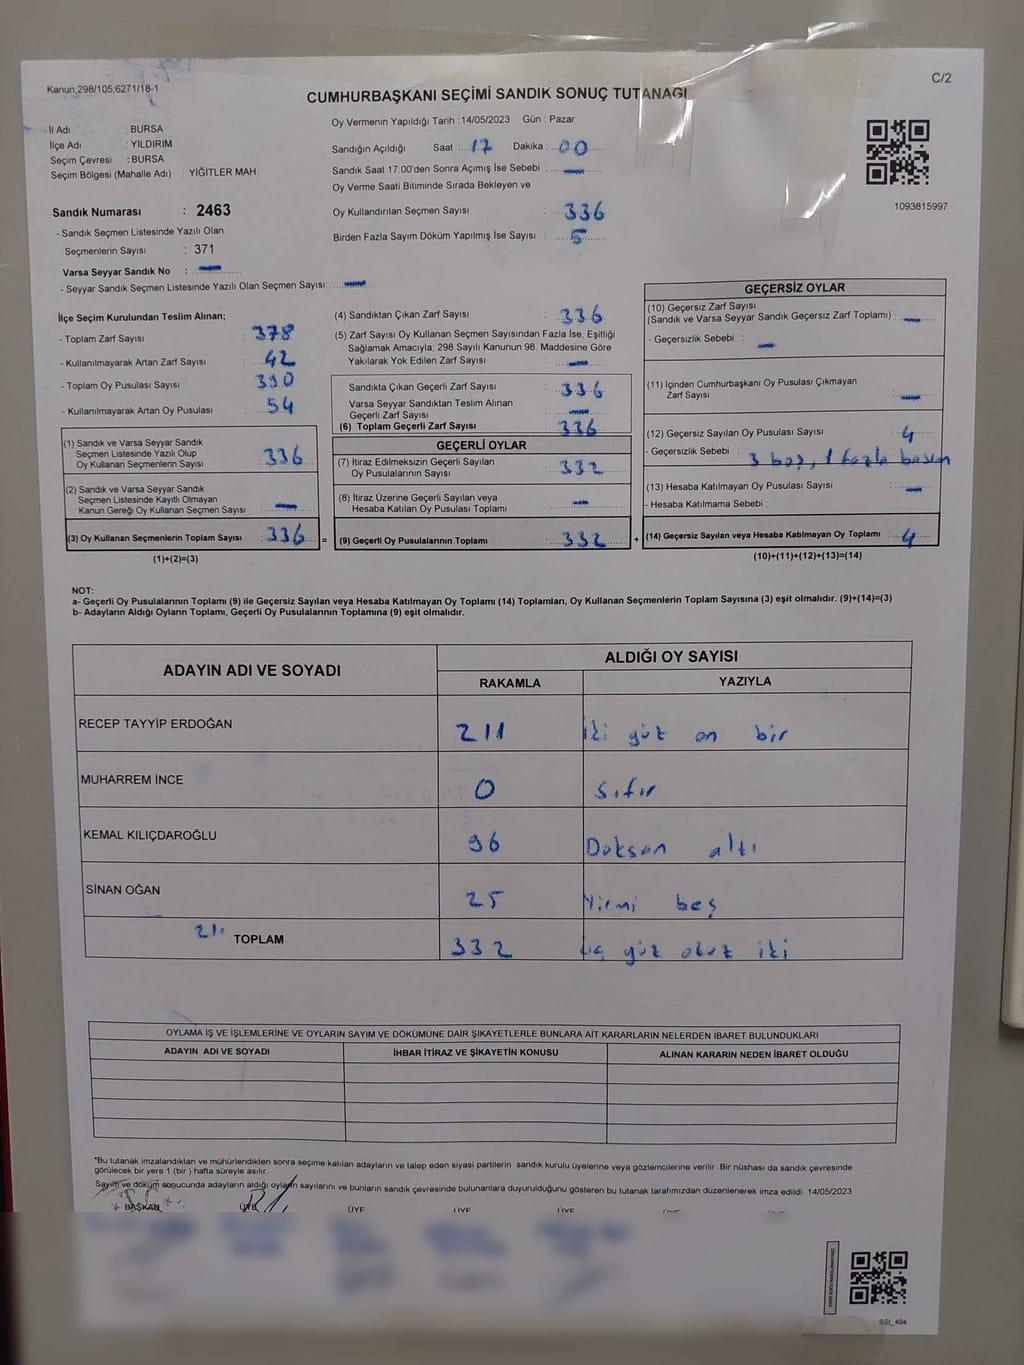 Kanun;298/105,6271/18-1
C/2
CUMHURBAŞKANI SEÇİMİ SANDIK SONUÇ TUTANAĞI
İl Adı : BURSA
İlçe Adı : YILDIRIM
Seçim Çevresi : BURSA
Seçim Bölgesi (Mahalle Adı) : YİĞİTLER MAH.
Oy Vermenin Yapıldığı Tarih : 14/05/2023 Gün : Pazar
Sandığın Açıldığı Saat : 17 Dakika : 00
Sandık Saat 17:00'den Sonra Açımış İse Sebebi : —
Oy Verme Saati Bitiminde Sırada Bekleyen ve
Oy Kullandırılan Seçmen Sayısı : 336
Birden Fazla Sayım Döküm Yapılmış İse Sayısı : 5
1093815997
Sandık Numarası : 2463
- Sandık Seçmen Listesinde Yazılı Olan
Seçmenlerin Sayısı : 371
Varsa Seyyar Sandık No : —
- Seyyar Sandık Seçmen Listesinde Yazılı Olan Seçmen Sayısı: —
İlçe Seçim Kurulundan Teslim Alınan;
- Toplam Zarf Sayısı : 378
- Kullanılmayarak Artan Zarf Sayısı : 42
- Toplam Oy Pusulası Sayısı : 390
- Kullanılmayarak Artan Oy Pusulası : 54
(1) Sandık ve Varsa Seyyar Sandık
Seçmen Listesinde Yazılı Olup
Oy Kullanan Seçmenlerin Sayısı : 336
(2) Sandık ve Varsa Seyyar Sandık
Seçmen Listesinde Kayıtlı Olmayan
Kanun Gereği Oy Kullanan Seçmen Sayısı : —
(3) Oy Kullanan Seçmenlerin Toplam Sayısı : 336
(1)+(2)=(3)
(4) Sandıktan Çıkan Zarf Sayısı : 336
(5) Zarf Sayısı Oy Kullanan Seçmen Sayısından Fazla İse, Eşitliği
Sağlamak Amacıyla; 298 Sayılı Kanunun 98. Maddesine Göre
Yakılarak Yok Edilen Zarf Sayısı : —
Sandıkta Çıkan Geçerli Zarf Sayısı : 336
Varsa Seyyar Sandıktan Teslim Alınan
Geçerli Zarf Sayısı : —
(6) Toplam Geçerli Zarf Sayısı : 336
GEÇERLİ OYLAR
(7) İtiraz Edilmeksizin Geçerli Sayılan
Oy Pusulasının Sayısı : 332
(8) İtiraz Üzerine Geçerli Sayılan veya
Hesaba Katılan Oy Pusulası Toplamı : —
= (9) Geçerli Oy Pusulalarının Toplamı : 332 +
GEÇERSİZ OYLAR
(10) Geçersiz Zarf Sayısı
(Sandık ve Varsa Seyyar Sandık Geçersiz Zarf Toplamı) : —
- Geçersizlik Sebebi : —
(11) İçinden Cumhurbaşkanı Oy Pusulası Çıkmayan
Zarf Sayısı : —
(12) Geçersiz Sayılan Oy Pusulası Sayısı : 4
- Geçersizlik Sebebi : 3 boş, 1 fazla basım
(13) Hesaba Katılmayan Oy Pusulası Sayısı : —
- Hesaba Katılmama Sebebi :
(14) Geçersiz Sayılan veya Hesaba Katılmayan Oy Toplamı : 4
(10)+(11)+(12)+(13)=(14)
NOT:
a- Geçerli Oy Pusulalarının Toplamı (9) ile Geçersiz Sayılan veya Hesaba Katılmayan Oy Toplamı (14) Toplamları, Oy Kullanan Seçmenlerin Toplam Sayısına (3) eşit olmalıdır. (9)+(14)=(3)
b- Adayların Aldığı Oyların Toplamı, Geçerli Oy Pusulalarının Toplamına (9) eşit olmalıdır.
ADAYIN ADI VE SOYADI ALDIĞI OY SAYISI
RAKAMLA YAZIYLA
RECEP TAYYİP ERDOĞAN 211 iki yüz on bir
MUHARREM İNCE 0 sıfır
KEMAL KILIÇDAROĞLU 96 Doksan altı
SİNAN OĞAN 25 Yirmi beş
21. TOPLAM 332 üç yüz otuz iki
OYLAMA İŞ VE İŞLEMLERİNE VE OYLARIN SAYIM VE DÖKÜMÜNE DAİR ŞİKAYETLERLE BUNLARA AİT KARARLARIN NELERDEN İBARET BULUNDUKLARI
ADAYIN ADI VE SOYADI İHBAR İTİRAZ VE ŞİKAYETİN KONUSU ALINAN KARARIN NEDEN İBARET OLDUĞU
*Bu tutanak imzalandıktan ve mühürlendikten sonra seçime katılan adayların ve talep eden siyasi partilerin sandık kurulu üyelerine veya gözlemcilerine verilir .Bir nüshası da sandık çevresinde
görülecek bir yere 1 (bir ) hafta süreyle asılır.
Sayım ve döküm sonucunda adayların aldığı oyların sayılarını ve bunların sandık çevresinde bulunanlara duyurulduğunu gösteren bu tutanak tarafımızdan düzenlenerek imza edildi 14/05/2023
BAŞKAN ÜYE ÜYE ÜYE ÜYE
SSI_404